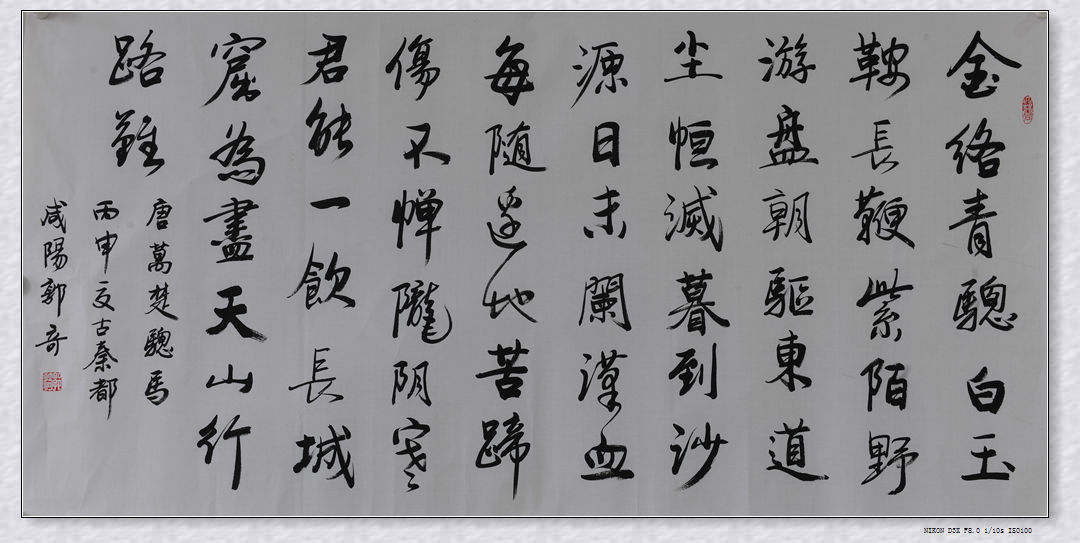 金絡青驄白玉
鞍長鞭紫陌野
游盤朝驅東道
尘恒滅暮到沙
源日未闌漢血
每随邊地苦蹄
傷不惮隴阴寒
君能一飲長城
窟為盡天山行
路難
唐萬楚驄馬
丙申夏古秦都
咸陽郭奇
NIKON D3X F8.0 1/10s ISO100